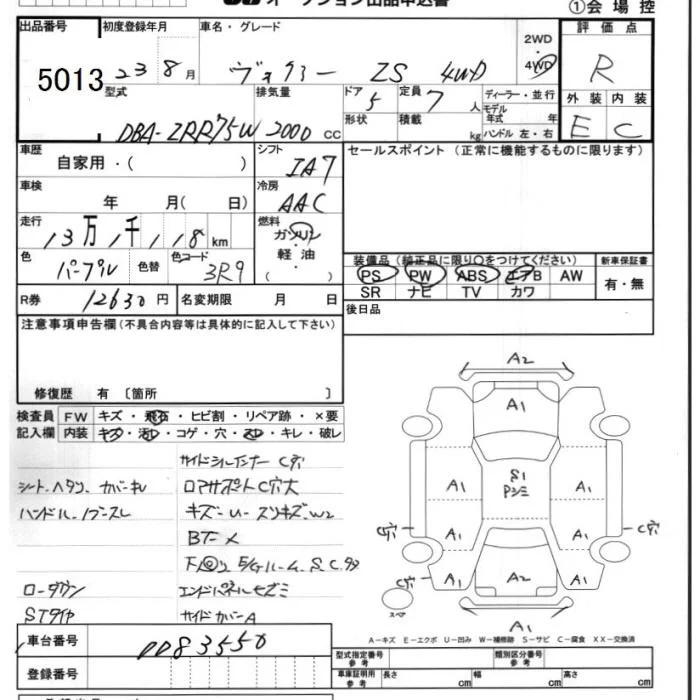 オークション出品申込書 ①会場控
出品番号 初度登録年月 車名・グレード 評価点
5013 23 8月 ヴォクシー ZS 4WD 2WD 4WD R
型式 排気量 ドア 5 定員 7人 ディーラー・並行 外装 内装
DBA-ZRR75W 2000cc 形状 積載 kg モデル年式 年 ハンドル 左・右 E C
車歴 シフト セールスポイント (正常に機能するものに限ります)
自家用・( ) IA7
車検 冷房
年 月( 日) AAC
走行 燃料
13万 1千 118km ガソリン
色 パープル 色替 色コード 3R9 軽油
・( )
装備品 (純正品に限り○をつけてください) 新車保証書
PS PW ABS エアB AW 有・無
SR ナビ TV カワ
R券 12630円 名変期限 月 日 後日品
注意事項申告欄(不具合内容等は具体的に記入して下さい)
修復歴 有 〔箇所 〕
検査員 FW キズ・飛石・ヒビ割・リペア跡・×要
記入欄 内装 キズ・汚れ・コゲ・穴・スレ・キレ・破レ
サイドシルインナーC穴
シートヘタリ、カバーキレ ロアサポートC穴大
ハンドル、ノブスレ キズ-U-スリキズ、W2
BTーメ
S、C、
ローダウン エンドパネル
STタイヤ サイドカバーA
A2
A1
A1 S1 A1
Pシミ
C穴 A1 A1 C穴
C穴 A1 A2 A1
スペア A1
A-キズ E-エクボ U-凹み W-補修跡 S-サビ C-腐食 XX-交換済
車台番号 0083550
型式指定番号 参考 類別区分番号 参考
登録番号 車庫証明用 参考 長さ cm 幅 cm 高さ cm